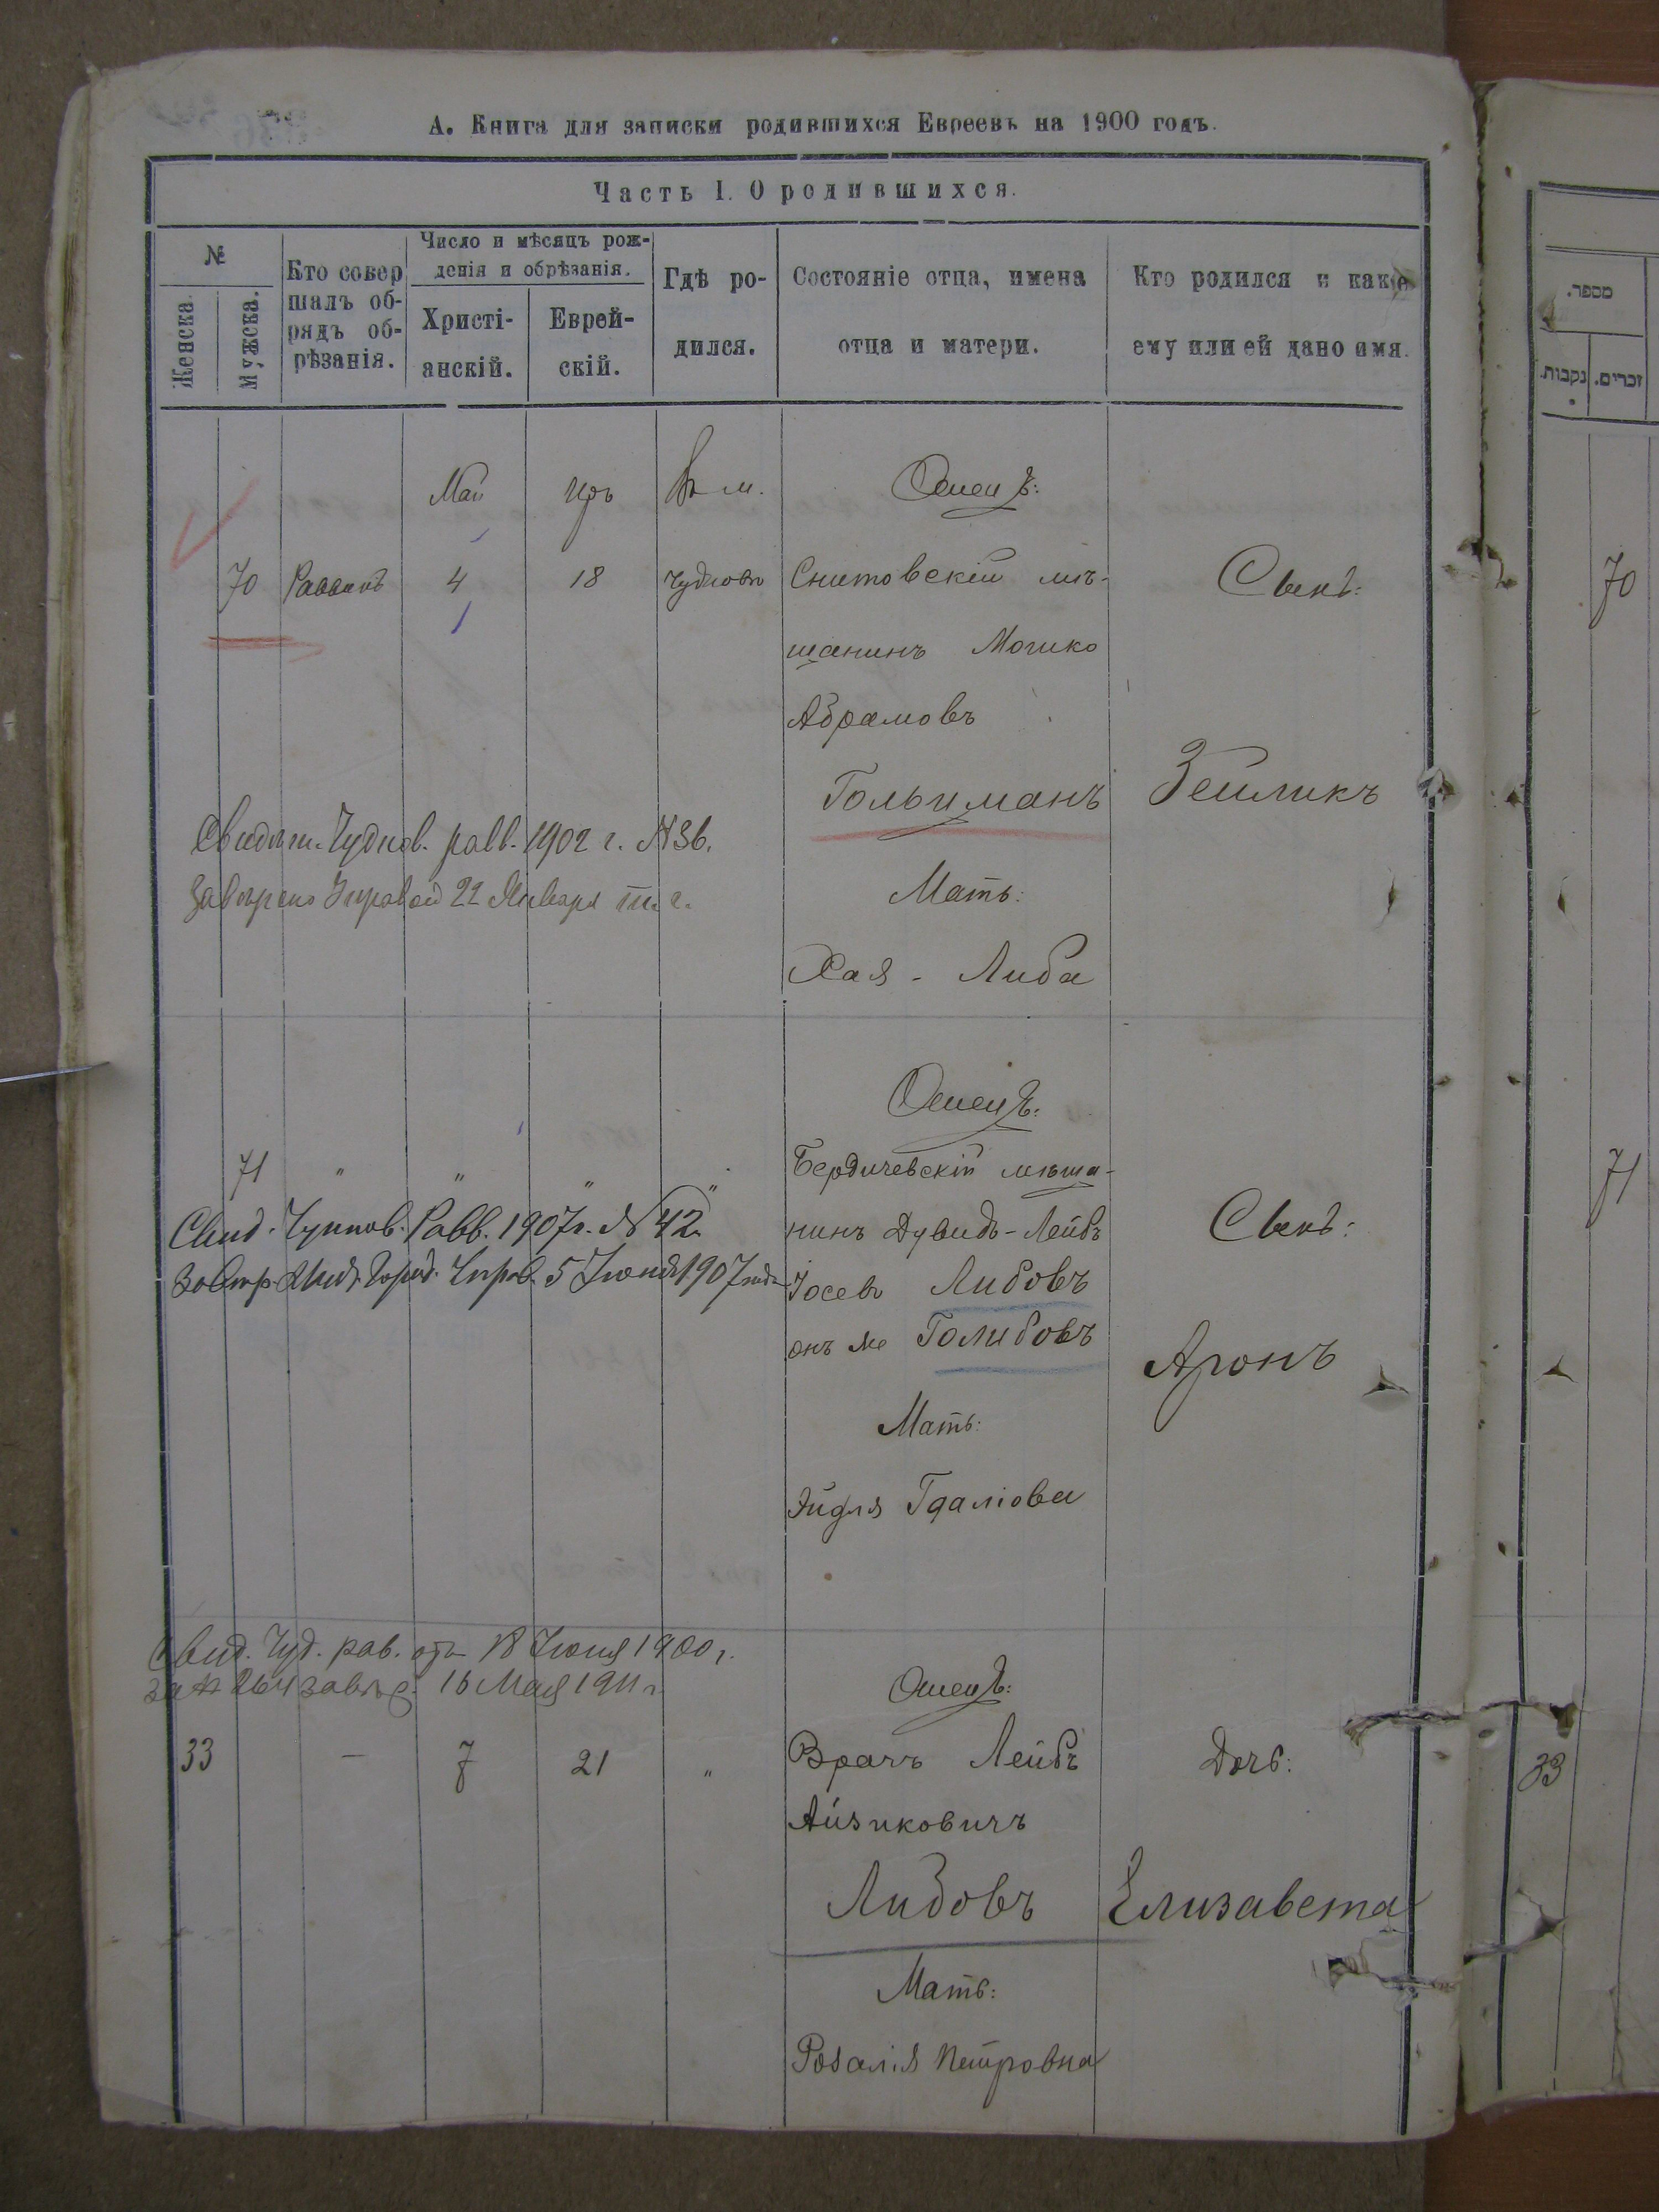 А. Книга для записки родившихся Евреевъ на 1900 годъ.
Часть I. О родившихся.
№
Женска.
Мужска.
Кто совер
шалъ об-
рядъ об-
рѣзанія.
Число и мѣсяцъ рож-
денія и обрѣзанія.
Христі-
анскій.
Еврей-
скій.
Гдѣ ро-
дился.
Состояніе отца, имена
отца и матери.
Кто родился и какое
ему или ей дано имя.
מספר.
נקבות.
זכרים.
Май
Иръ
Въ м.
Отецъ:
70
Раввинъ
4
18
Чудновѣ
Снитовскій мѣ-
щанинъ Мошко
Абрамовъ
Гольцманъ
Мать:
Хая - Либа
Сынъ:
Зейликъ
70
Свидѣт. Чуднов. равв. 1902 г. №36.
Завѣрено Управой 22 Января т. г.
Отецъ:
71 " " " "
Бердичевскій мѣща-
нинъ Дувидъ-Лейбъ
Іосевъ Либовъ
онъ же Голибовъ
Мать:
Эйдля Гдаліова
Сынъ:
Аронъ
71
Свид. Равв. 1907г. № 42
Город. Управ. 5 Іюня 1907 года
Свид. Чуд. рав. отъ 18 Іюня 1900 г.
за № 264 завѣр. 16 Мая 1911 г.
Отецъ:
33 — 7 21 "
Врачъ Лейбъ
Айзиковичъ
Либовъ
Мать:
Розалія Петровна
Дочь:
Елизавета
33